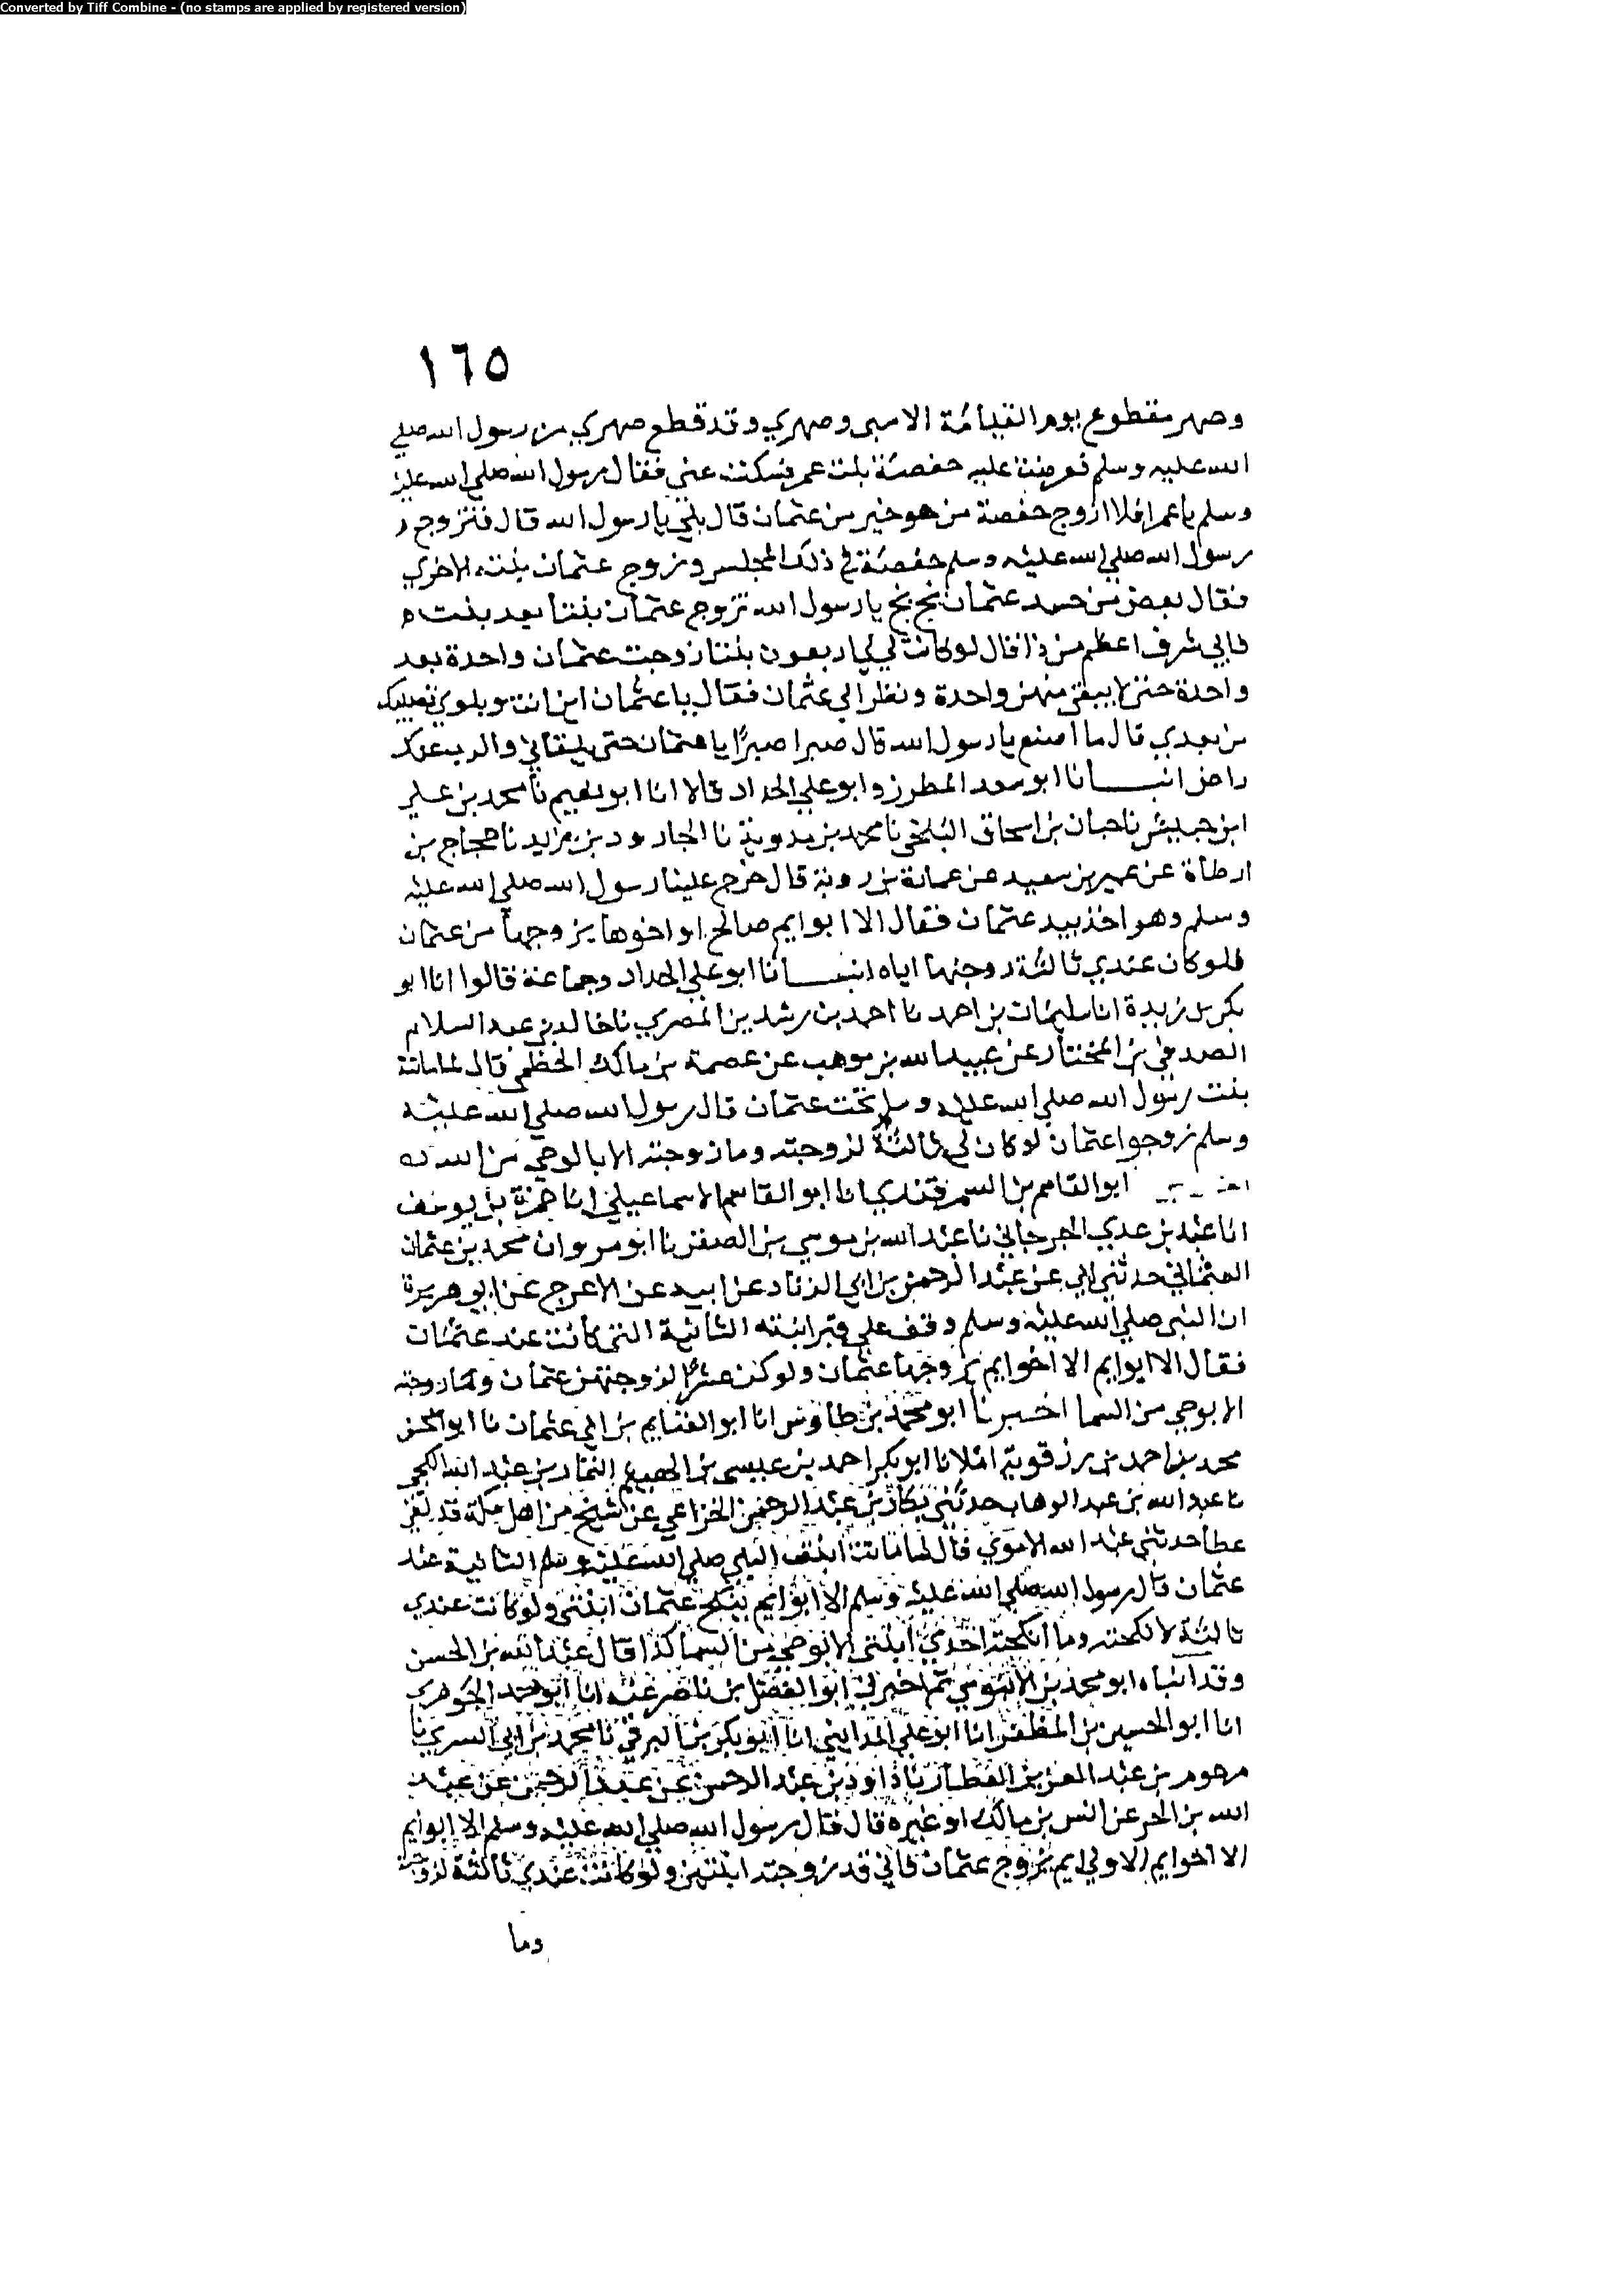 Converted by Tiff Combine - (no stamps are applied by registered version)
١٦٥
وصهر مقطوع يوم القيامة الا سببي وصهري وقد قطع صهري من رسول الله صلى
الله عليه وسلم فعرضت عليه حفصة بنت عمر فسكت عني فقال رسول الله صلى الله عليه
وسلم يا عمر افلا ازوج حفصة من هو خير من عثمان قال بلى يا رسول الله قال فتزوج ر
رسول الله صلى الله عليه وسلم حفصة في ذلك المجلس وزوج عثمان بنته الاخرى
فقال بعض من حسد عثمان بخ بخ يا رسول الله تزوج عثمان بنتا بعد بنت
فاي شرف اعظم من ذا قال لو كانت لي اربعون بنتا زوجت عثمان واحدة بعد
واحدة حتى لا يبقى منهن واحدة ونظر الى عثمان فقال يا عثمان اين انت وبلوى تصيبك
من بعدي قال ما اصنع يا رسول الله قال صبرا صبرا يا عثمان حتى يلقاني والرب عنك
راض انبانا ابو سعد المطرز وابو علي الحداد قالا انا ابو نعيم نا محمد بن علي
ابن حبيش نا حبان بن اسحاق البلخي نا محمد بن مدوية نا الجارود بن يزيد نا حجاج بن
ارطاة عن عمير بن سعيد عن عمارة بن روبة قال خرج علينا رسول الله صلى الله عليه
وسلم وهو اخذ بيد عثمان فقال الا ابو ايم صالح او اخوها يزوجها من عثمان
فلو كان عندي ثالثة زوجتها اياه انبانا ابو علي الحداد وجماعة قالوا انا ابو
بكر بن زيدة انا سليمان بن احمد نا احمد بن رشدين المصري نا خالد بن عبد السلام
الصدفي بن المختار عن عبيد الله بن موهب عن عصمة بن مالك الخطمي قال لما ماتت
بنت رسول الله صلى الله عليه وسلم تحت عثمان قال رسول الله صلى الله عليه
وسلم زوجوا عثمان لو كان لي ثالثة لزوجته وما زوجته الا بالوحي من الله
ابو القاسم بن السمرقندي انا ابو القاسم الاسماعيلي انا حمزة بن يوسف
انا عبد بن عدي الجرجاني نا عبد الله بن موسى بن الصقر نا ابو مروان محمد بن عثمان
العثماني حدثني ابي عن عبد الرحمن بن ابي الزناد عن ابيه عن الاعرج عن ابي هريرة
ان النبي صلى الله عليه وسلم وقف على قبر ابنته الثانية التي كانت عند عثمان
فقال الا ابو ايم الا اخو ايم يزوجها عثمان ولو كن عشرا لزوجتهن عثمان وما زوجته
الا بوحي من السما اخبرنا ابو محمد بن طاوس انا ابو الغنايم بن ابي عثمان نا ابو الحسن
محمد بن احمد بن رزقوية املا نا ابو بكر احمد بن عيسى بن التمار بن عبد
نا عبد الله بن عبد الوهاب حدثني بكار بن عبد الرحمن الخزاعي عن شيخ من اهل مكة قد
عطا حدثني عبد الله الاموي قال لما ماتت ابنت النبي صلى الله عليه وسلم الثانية عند
عثمان قال رسول الله صلى الله عليه وسلم الا ابو ايم ينكح عثمان ابنتي ولو كانت عندي
ثالثة لانكحته وما انكحته احدى ابنتي الا بوحي من السما كذا قال عبد الله بن الحسن
وقد انباه ابو محمد بن الابنوسي ثم اخبرني ابو الفضل بن ناصر عنه انا ابو محمد الجوهري
انا ابو الحسين بن المظفر انا ابو علي المدايني انا ابو بكر بن البرقي نا محمد بن ابي السري نا
مرحوم بن عبد العزيز العطار نا داود بن عبد الرحمن عن عبد الرحمن عن عبد
الله بن الحر عن انس بن مالك او غيره قال قال رسول الله صلى الله عليه وسلم الا ابو ايم
الا اخو ايم الا ولي ايم يزوج عثمان فاني قد زوجته ابنتين ولو كانت عندي ثالثة لزوجته
وما